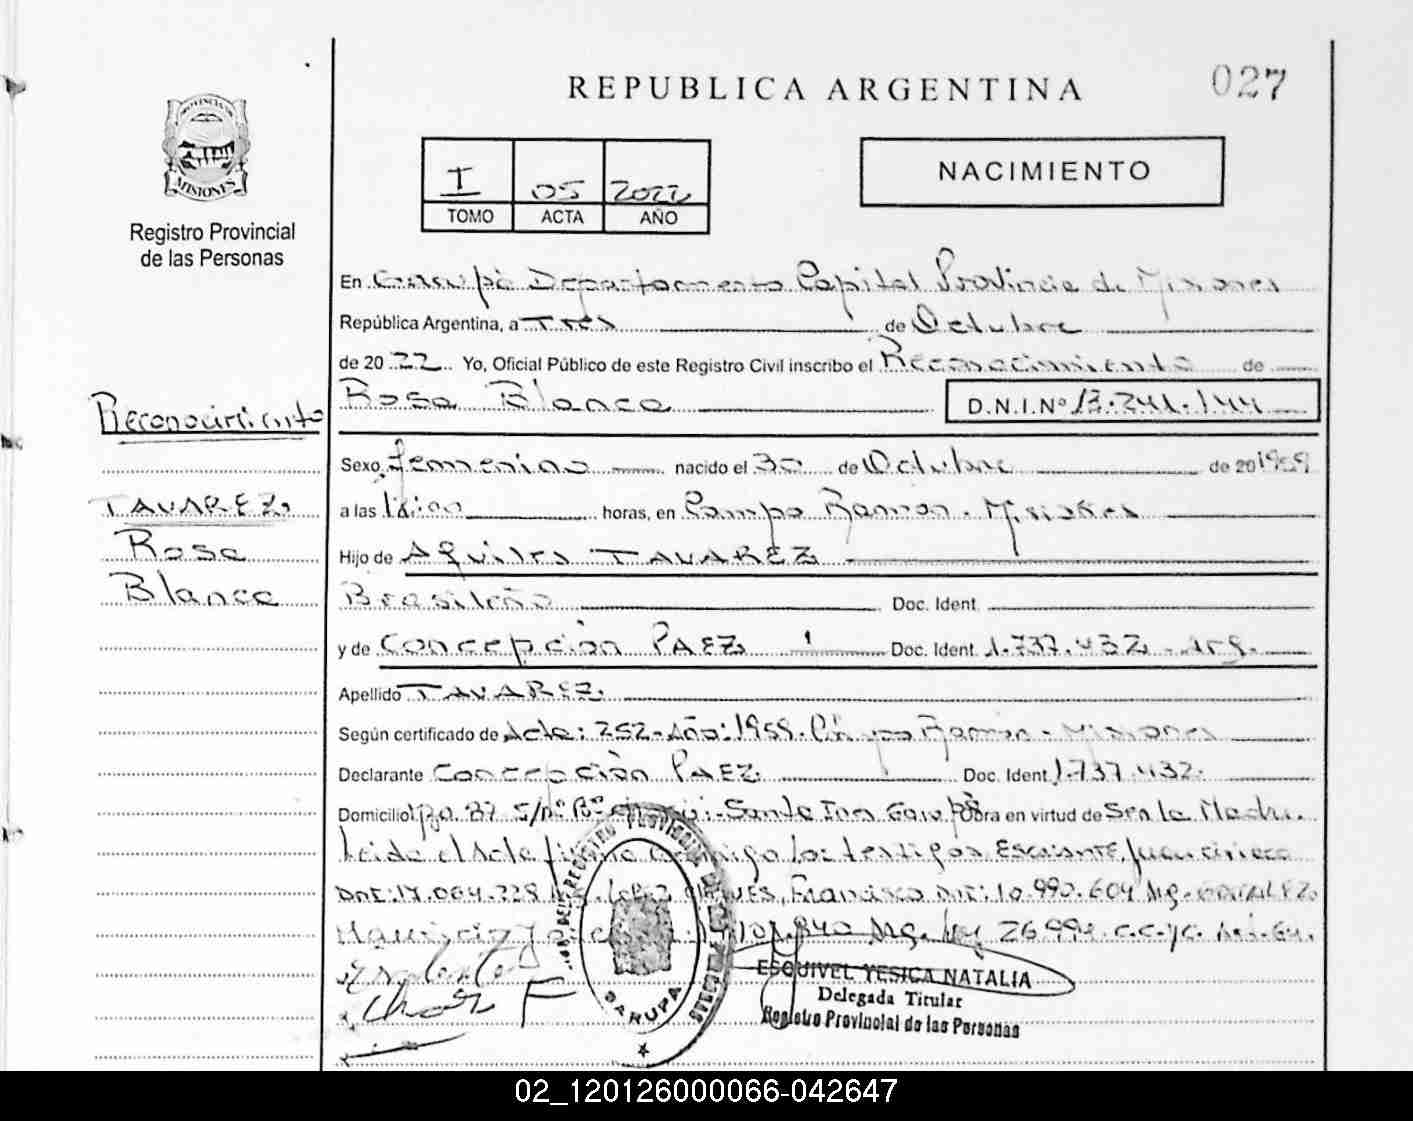 REPUBLICA ARGENTINA
027
PROVINCIA DE
MISIONES
Registro Provincial
de las Personas
I 05 2022
TOMO ACTA AÑO
NACIMIENTO
En Garupá Departamento Capital Provincia de Misiones
República Argentina, a Tres de Octubre
de 2022 Yo, Oficial Público de este Registro Civil inscribo el Reconocimiento de
Rosa Blanca D.N.I.Nº 13.241.144
Reconocimiento
TAVAREZ
Rosa
Blanca
Sexo femenino nacido el 30 de Octubre de 20 1959
a las horas, en Campo Ramon. Misiones
Hijo de Aquiles TAVAREZ
Brasileño Doc. Ident.
y de Concepción PAEZ Doc. Ident. 1.737.432 - Arg.
Apellido TAVAREZ
Según certificado de Acta: 252 - Año: 1959. Ramon - Misiones
Declarante Concepción PAEZ Doc. Ident 1.737.432.
Domicilio S/nº Bº Santa Ines Garupá Obra en virtud de Ser la Madre.
Leida el Acta firma conmigo los testigos Escalante, Juan
DNI: 17.004.228 Francisco DNI: 10.990.604 Arg.
Arg. Ley 26994. C.C.yC. Art.
ESQUIVEL YESICA NATALIA
Delegada Titular
Registro Provincial de las Personas
REGISTRO PROVINCIAL DE LAS PERSONAS
GARUPA
02_120126000066-042647